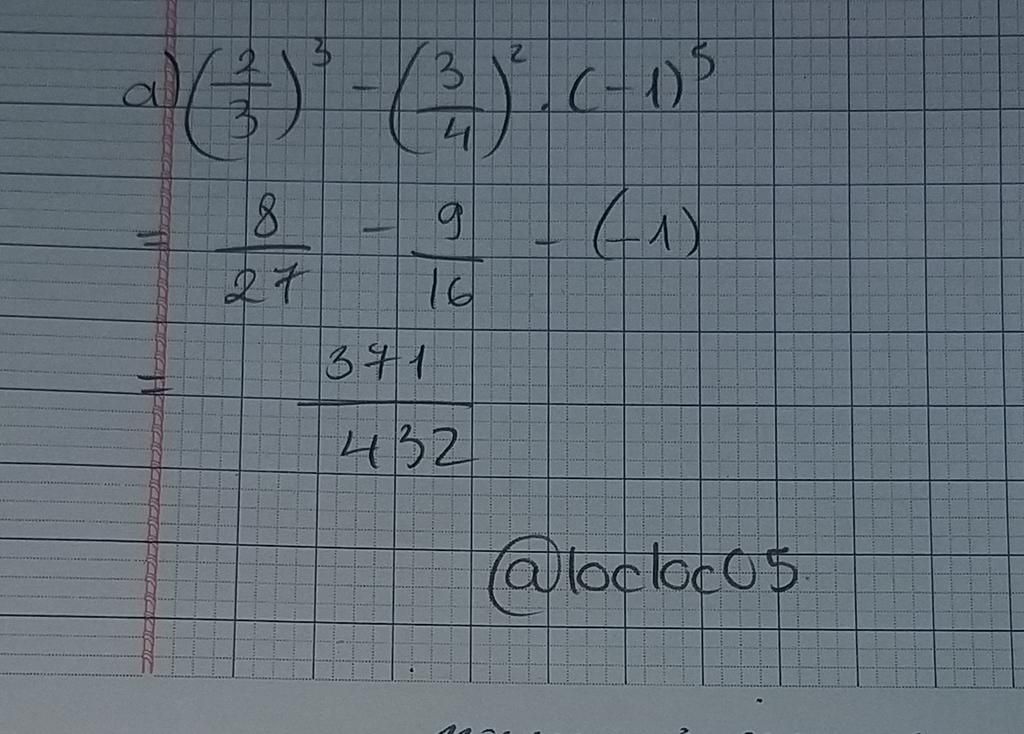 a) (2/3)³ - (3/4)² . (-1)⁵
= 8/27 - 9/16 - (-1)
= 371/432
@locloc05